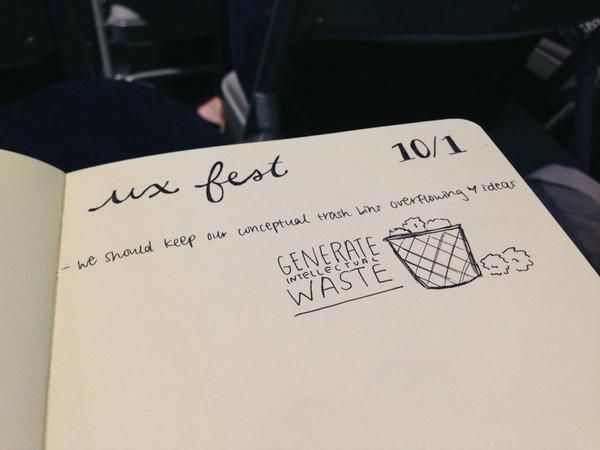 ux fest
10/1
- we should keep our conceptual trash bins overflowing w/ ideas
GENERATE
INTELLECTUAL
WASTE